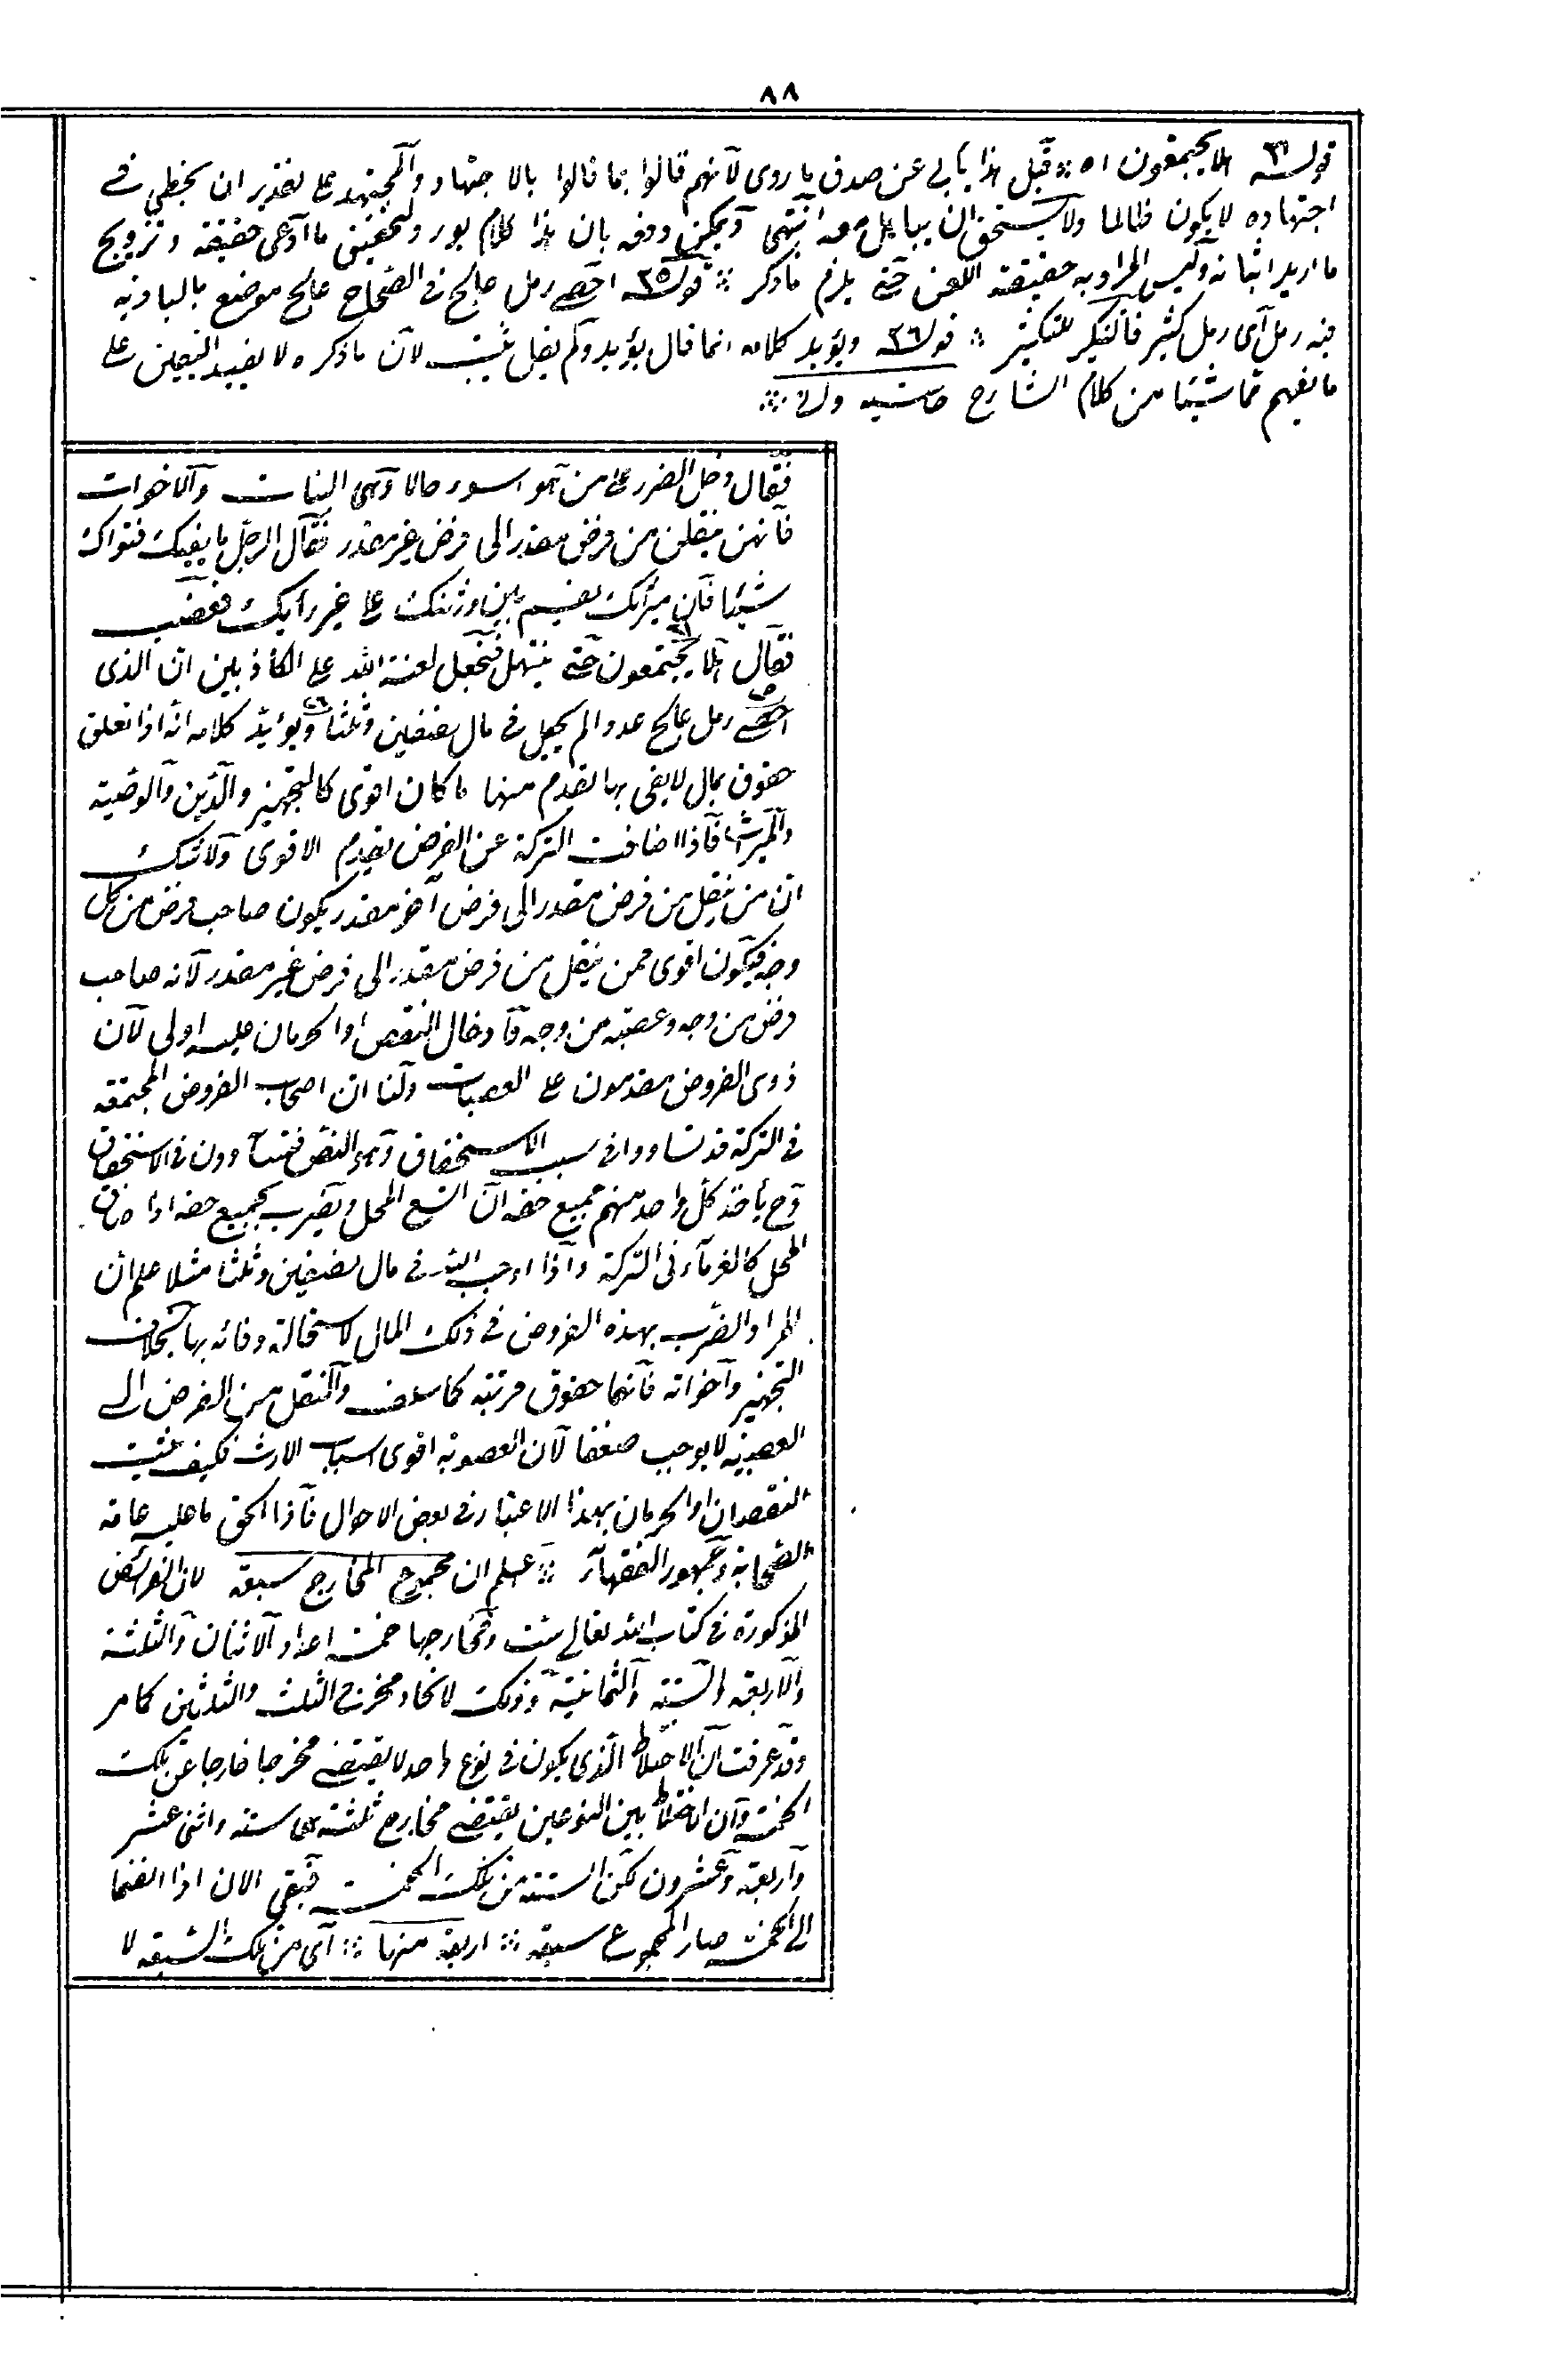 ٨٨
قوله الا يجتمعون اه قيل هذا يأبى عن صدق ما روى لانهم قالوا بما قالوا بالاجتهاد والمجتهد على تقدير ان يخطى فى
اجتهاده لا يكون ظالما ولا يستحق ان يباهل معه انتهى ويمكن دفعه بان هذا كلام يورد لتحقيق ما ادعى حقيقته وترويج
ما اريد اثباته وليس المراد به حقيقة اللعن حتى يلزم ما ذكر قوله ٢٥ احصى رمل عالج فى الصحاح عالج موضع بالبادية
به رمل اى رمل كثير فالتنكير للتكثير قوله ٢٦ ويؤيد كلامه انما قال يؤيد ولم يقل يثبت لان ما ذكره لا يفيد اليقين على
ما يفهم مما شيئا من كلام الشارح حاشيه
فقال ادخل الضرر على من هو اسوء حالا وهى البنات والاخوات
فانهن ينقلن من فرض مقدر الى فرض غير مقدر فقال الرجل ما يغنيك فتواك
شيئا فان ميراثك يقسم بين ورثتك على غير رأيك فغضب
فقال الا يجتمعون حتى نبتهل فنجعل لعنة الله على الكاذبين ان الذى
احصى رمل عالج عددا لم يجعل فى مال نصفين وثلثا ويؤيد كلامه انه اذا تعلق
حقوق بمال لا يفى بها تقدم منها ما كان اقوى كالتجهيز والدين والوصية
والميراث فاذا ضاقت التركة عن الفرض يقدم الاقوى ولا شك
ان من ينقل من فرض مقدر الى فرض آخر مقدر يكون صاحب فرض من كل
وجه فيكون اقوى ممن ينقل من فرض مقدر الى فرض غير مقدر لانه صاحب
فرض من وجه وعصبة من وجه فادخال النقص او الحرمان عليه اولى لان
ذوى الفروض مقدمون على العصبات ولنا ان اصحاب الفروض المجتمعة
فى التركة قد تساووا فى سبب الاستحقاق وهو النص فيتساوون فى الاستحقاق
وح يأخذ كل واحد منهم جميع حقه ان اتسع المحل ويضرب بجميع حقه اذا ضاق
المحل كالغرماء فى التركة واذا اوجب الله فى مال نصفين وثلثا مثلا علم ان
المراد الضرب بهذه الفروض فى ذلك المال لاستحالة وفائه بها بخلاف
التجهيز واخواته فانها حقوق مرتبة كما سلف والنقل من الفرض الى
العصبية لا يوجب ضعفا لان العصوبة اقوى اسباب الارث فكيف يثبت
النقصان او الحرمان بهذا الاعتبار فى بعض الاحوال فاذا الحق ما عليه عامة
الصحابة وجمهور الفقهاء اعلم ان مجموع المخارج سبعة لان الفرائض
المذكورة فى كتاب الله تعالى ست ومخارجها خمسة اعداد الاثنان والثلثة
والاربعة والستة والثمانية وذلك لاتحاد مخرج الثلث والثلثين كما مر
وقد عرفت ان الاختلاط الذى يكون فى نوع واحد لا يقتضى مخرجا خارجا عن تلك
الخمسة وان الاختلاط بين النوعين يقتضى مخارج ثلثة هى ستة واثنى عشر
واربعة وعشرون لكن الستة من تلك الخمسة فبقى اثنان اذا انضما
الى الخمسة صار المجموع سبعة اربعة منها اى من تلك السبعة لا